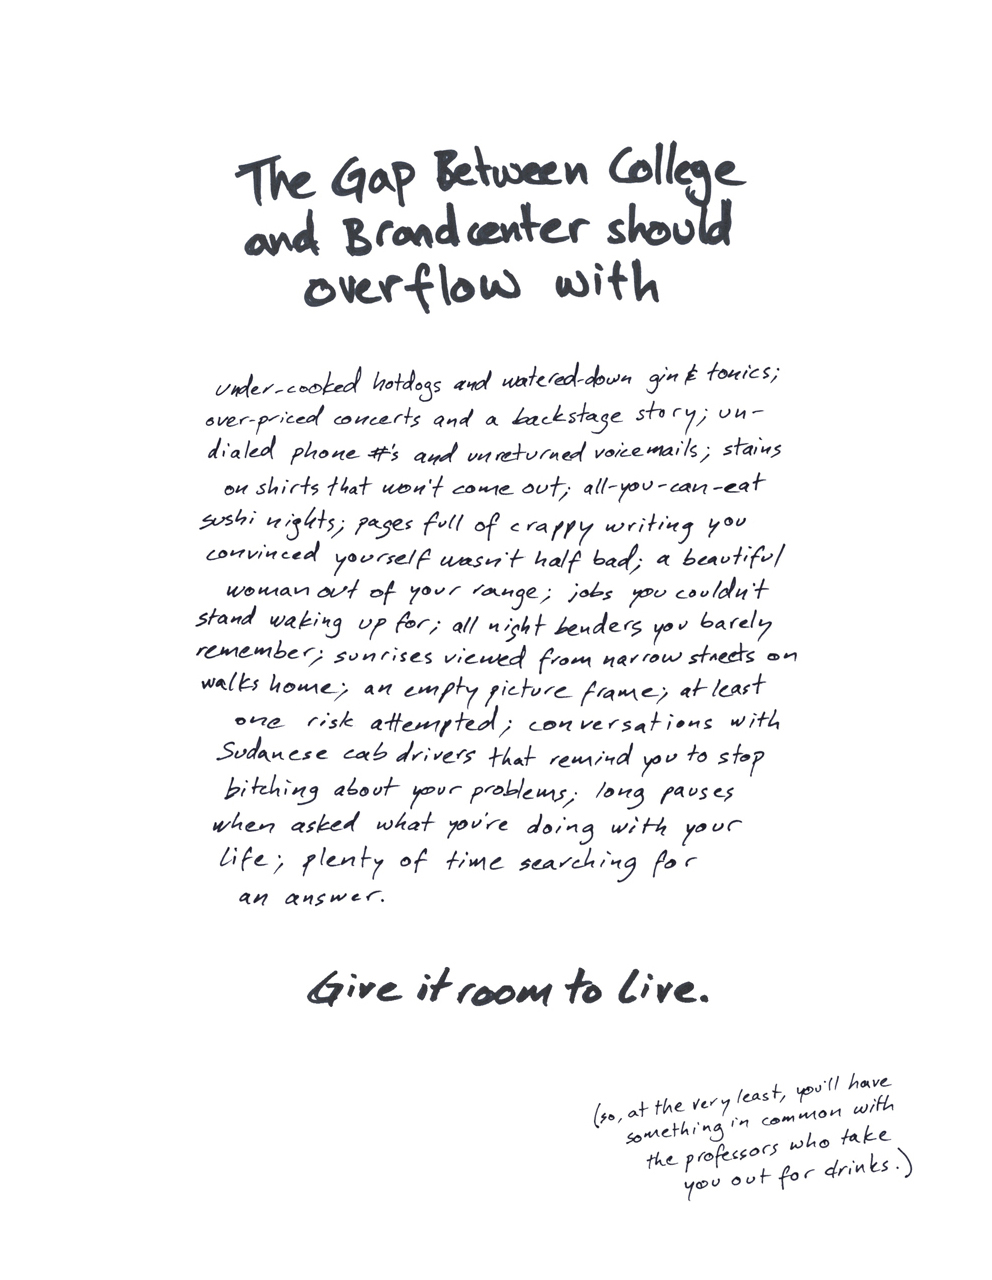 The Gap Between College
and Brandcenter should
overflow with
under-cooked hotdogs and watered-down gin & tonics;
over-priced concerts and a backstage story; un-
dialed phone #'s and unreturned voicemails; stains
on shirts that won't come out; all-you-can-eat
sushi nights; pages full of crappy writing you
convinced yourself wasn't half bad; a beautiful
woman out of your range; jobs you couldn't
stand waking up for; all night benders you barely
remember; sunrises viewed from narrow streets on
walks home; an empty picture frame; at least
one risk attempted; conversations with
Sudanese cab drivers that remind you to stop
bitching about your problems; long pauses
when asked what you're doing with your
life; plenty of time searching for
an answer.
Give it room to live.
(so, at the very least, you'll have
something in common with
the professors who take
you out for drinks.)